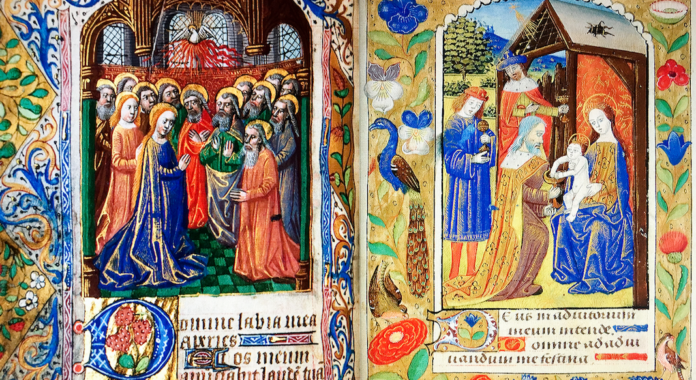 Domine labia mea
aperies
Et os meum
laudē tua
Deus in adiutorium
meum intende.
Domine ad adiu
uandum me festina